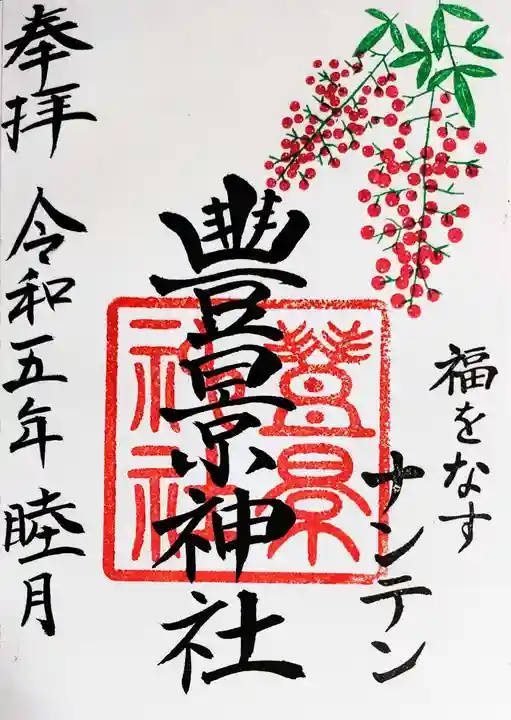 福をなす
ナンテン
豊景神社
豊景
神社
奉拝 令和五年 睦月